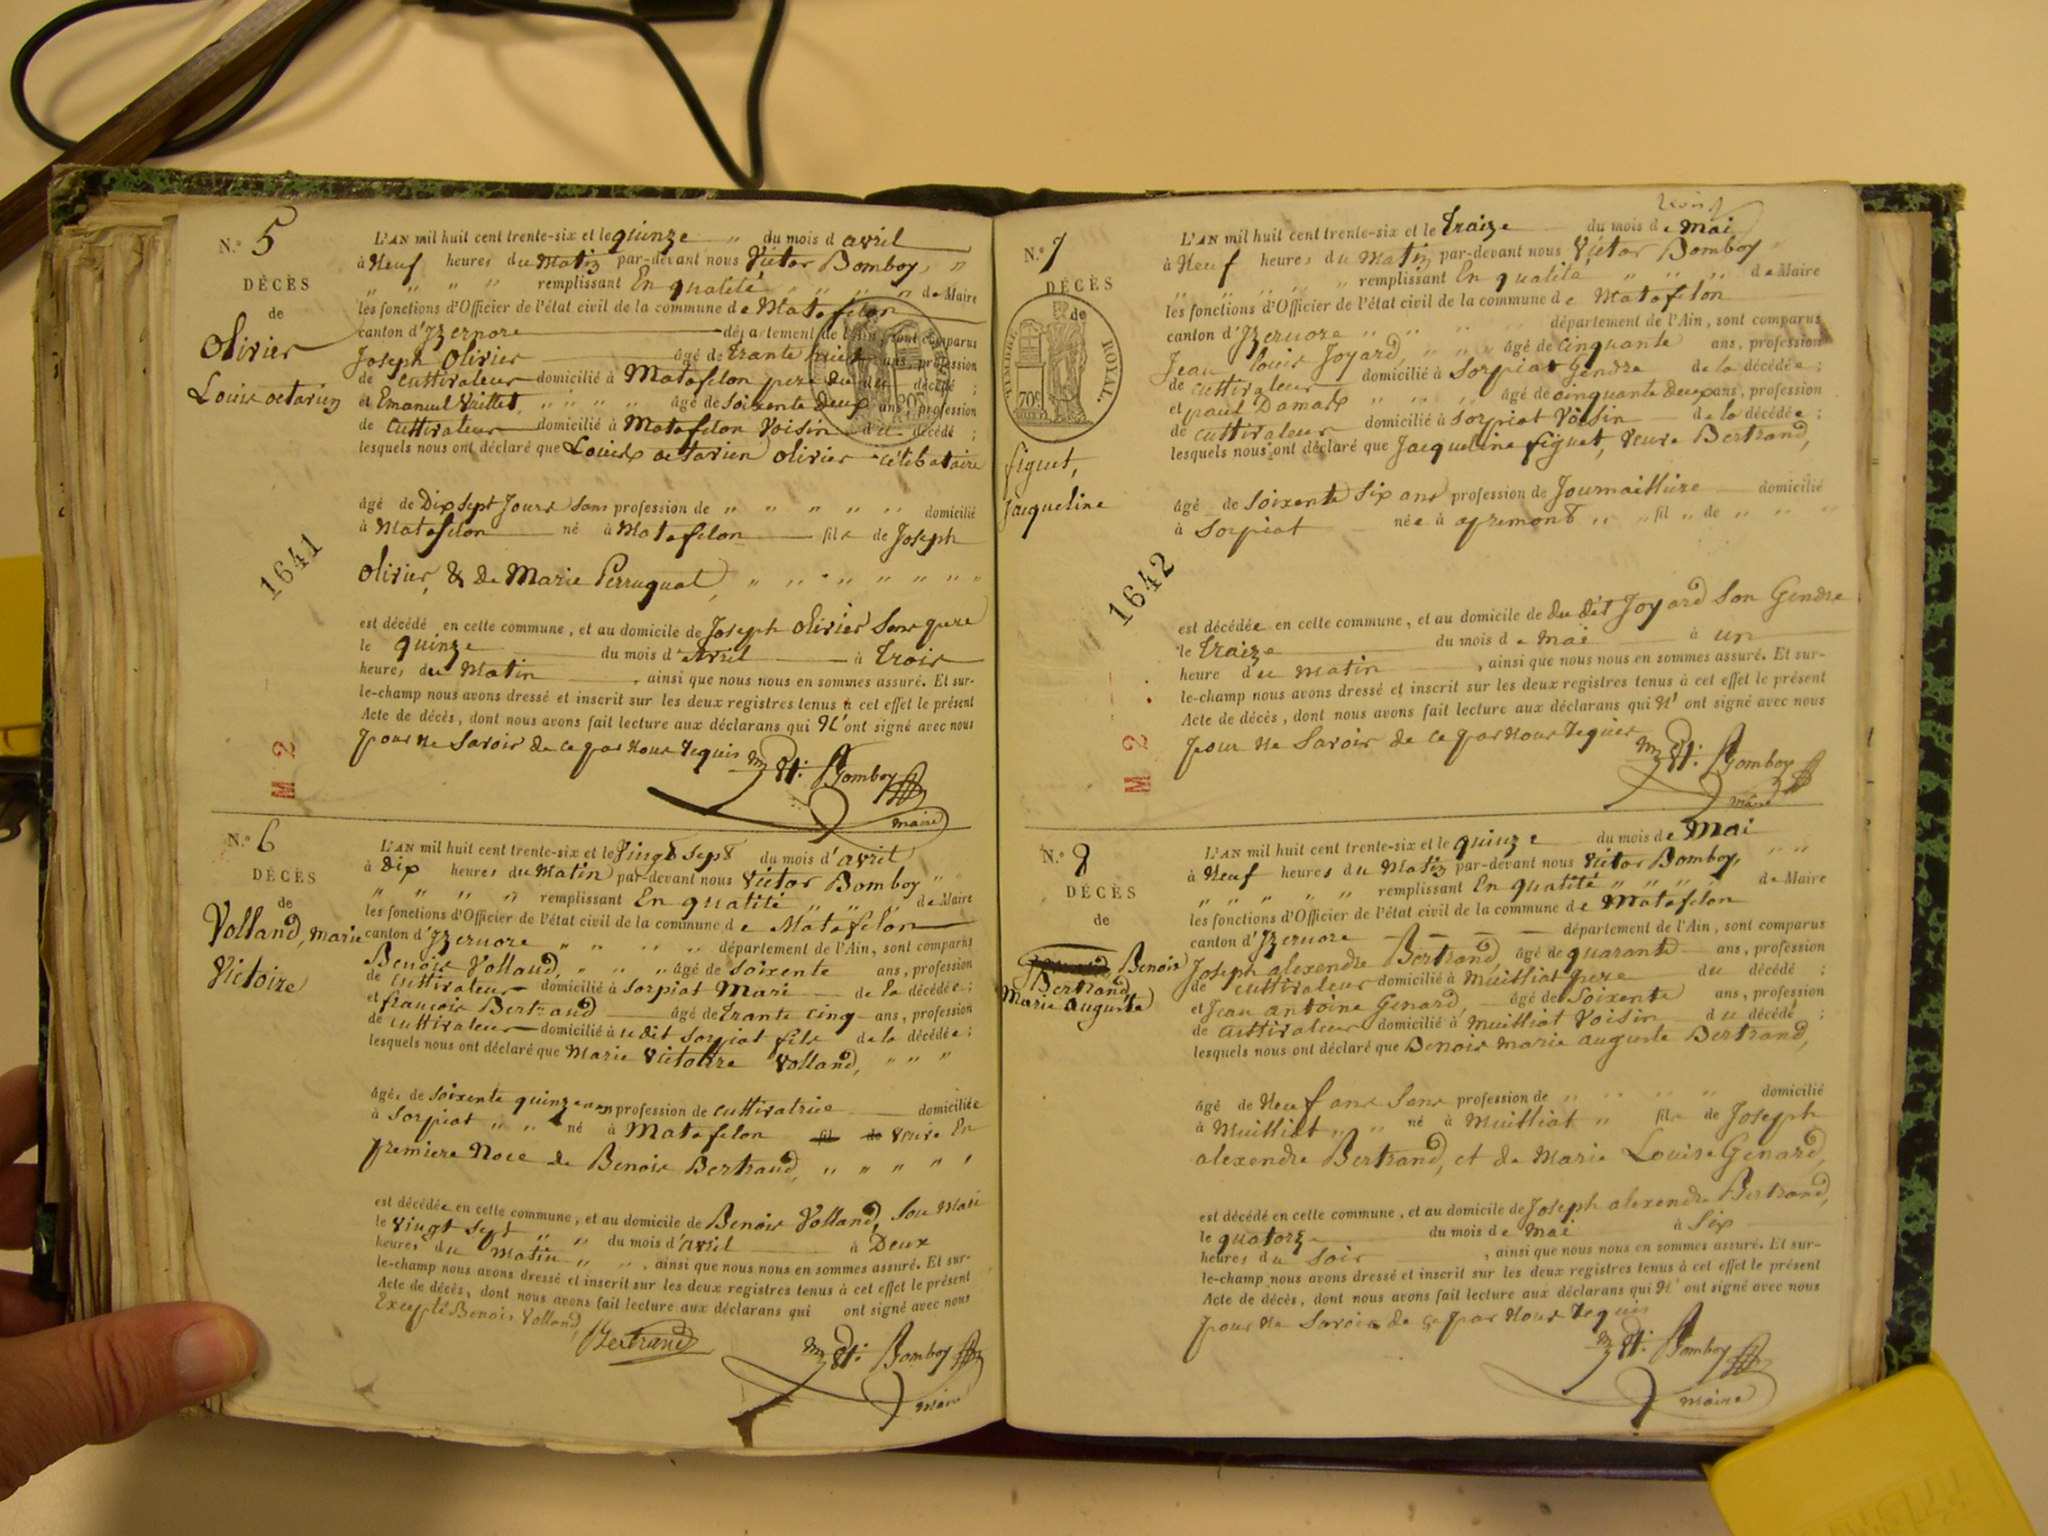 N.º 5
DÉCÈS
de
Olivier
Louis octavien
1641
M 2
L'AN mil huit cent trente-six et le quinze " du mois d avril
à Neuf heures du Matin par-devant nous Victor Bomboy, "
" " " " remplissant En qualité " " " " de Maire
les fonctions d'Officier de l'état civil de la commune de Matafelon
canton d'Izernore département de l'Ain, sont comparus
Joseph Olivier âgé de trante huit ans, profession
de cultivateur domicilié à Matafelon pere du décédé ;
et Emanuel Vuillet, " " " " âgé de Soixente Deux ans, profession
de cultivateur domicilié à Matafelon Voisin du décédé ;
lesquels nous ont déclaré que Louis octavien Olivier célibataire
âgé de Dix sept Jours Sans profession de " " " " " domicilié
à Matafelon né à Matafelon fils de Joseph
Olivier, & de Marie Perruquat, " " " " " " " "
est décédé en cette commune, et au domicile de Joseph Olivier Sons pere
le quinze du mois d'avril à trois
heures du Matin , ainsi que nous nous en sommes assuré. Et sur-
le-champ nous avons dressé et inscrit sur les deux registres tenus à cet effet le présent
Acte de décès, dont nous avons fait lecture aux déclarans qui N'ont signé avec nous
pour Ne Savoir de ce par Nous Requis
Bomboy
maire
N.º 6
DÉCÈS
de
Volland, marie
Victoire
L'AN mil huit cent trente-six et le Vingt Sept du mois d'avril
à Dix heures du Matin par-devant nous Victor Bomboy " "
" " " " remplissant En qualité " " " de Maire
les fonctions d'Officier de l'état civil de la commune de Matafelon
canton d'Izernore " " " " département de l'Ain, sont comparus
Benois Volland, " " " " âgé de Soixente ans, profession
de cultivateur domicilié à Sorpiat Mari de la décédée ;
et francois Bertrand âgé de trante cinq ans, profession
de cultivateur domicilié à udit Sorpiat fils de la décédée ;
lesquels nous ont déclaré que Marie Victoire Volland, " " "
âgée de Soixente quinze ans profession de cultivatrice domiciliée
à Sorpiat " " né à Matafelon fil de veuve En
premiere Noce de Benois Bertrand, " " " " "
est décédée en cette commune, et au domicile de Benois Volland, Son Mari
le Vingt Sept " " du mois d'avril à Deux
heures du Matin " " , ainsi que nous nous en sommes assuré. Et sur-
le-champ nous avons dressé et inscrit sur les deux registres tenus à cet effet le présent
Acte de décès, dont nous avons fait lecture aux déclarans qui ont signé avec nous
Excepté Benois Volland,
Bertrand
Bomboy
maire
N.º 7
DÉCÈS
de
TIMBRE ROYAL.
70 c
figuet,
Jacqueline
1642
M 2
L'AN mil huit cent trente-six et le traize du mois de mai
à Neuf heures du Matin par-devant nous Victor Bomboy
" " " " remplissant En qualité " " " de Maire
les fonctions d'Officier de l'état civil de la commune de Matafelon
canton d'Izernore " " " " département de l'Ain, sont comparus
Jean louis Joyard, " " " âgé de cinquante ans, profession
de cultivateur domicilié à Sorpiat Gendre de la décédée ;
et paul Damas " " " " âgé de cinquante deux ans, profession
de cultivateur domicilié à Sorpiat Voisin de la décédée ;
lesquels nous ont déclaré que Jacqueline figuet, veuve Bertrand,
âgé de Soixente Six ans profession de Journaillière domicilié
à Sorpiat née à apremont " " fil " de " " "
est décédée en cette commune, et au domicile de du dit Joyard Son Gendre
le traize du mois de mai à un
heure du matin , ainsi que nous nous en sommes assuré. Et sur-
le-champ nous avons dressé et inscrit sur les deux registres tenus à cet effet le présent
Acte de décès, dont nous avons fait lecture aux déclarans qui N'ont signé avec nous
pour Ne Savoir de ce par Nous Requis
Bomboy
maire
N.º 8
DÉCÈS
de
Benois
Bertrand
Marie auguste
L'AN mil huit cent trente-six et le quinze du mois de mai
à Neuf heures du Matin par-devant nous Victor Bomboy, " "
" " " " " remplissant En qualité " " " " de Maire
les fonctions d'Officier de l'état civil de la commune de Matafelon
canton d'Izernore département de l'Ain, sont comparus
Joseph alexendre Bertrand, âgé de quarante ans, profession
de cultivateur domicilié à Muilliat pere du décédé ;
et Jean antoine Genard, âgé de Soixente ans, profession
de cultivateur domicilié à Muilliat Voisin du décédé ;
lesquels nous ont déclaré que Benois marie auguste Bertrand,
âgé de Neuf ans Sans profession de " " " " domicilié
à Muilliat " " né à Muilliat " fils de Joseph
alexendre Bertrand, et de Marie Louise Genard,
est décédé en cette commune, et au domicile de Joseph alexendre Bertrand,
le quatorze du mois de mai à Six
heures du Soir , ainsi que nous nous en sommes assuré. Et sur-
le-champ nous avons dressé et inscrit sur les deux registres tenus à cet effet le présent
Acte de décès, dont nous avons fait lecture aux déclarans qui N'ont signé avec nous
pour Ne Savoir de ce par Nous Requis
Bomboy
maire